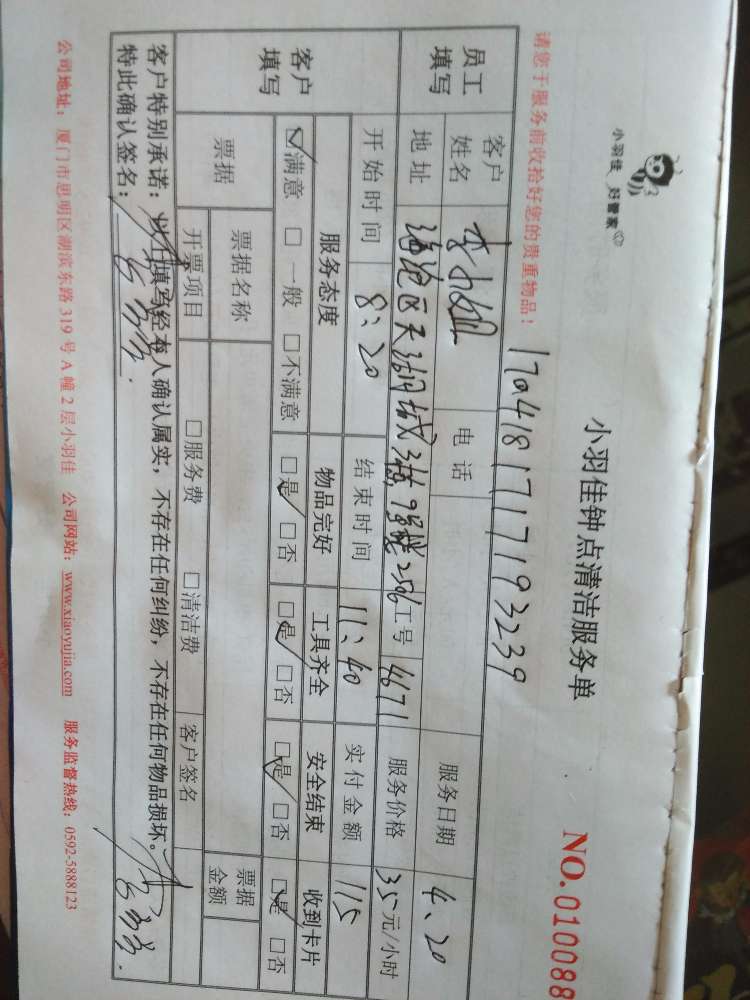 小羽佳 好管家
小羽佳钟点清洁服务单
NO.010088
请您于服务前收拾好您的贵重物品！
1704181717193239
员工填写 客户姓名 李小姐 电话 服务日期 4、20
地址 海沧区天湖城 工号 4671 服务价格 35元/小时
客户填写 开始时间 8：20 结束时间 11：40 实付金额 115
服务态度 物品完好 工具齐全 安全结束 收到卡片
☑满意 □一般 □不满意 ☑是 □否 ☑是 □否 ☑是 □否 ☑是 □否
票据 票据名称 票据金额
开票项目 □服务费 □清洁费 客户签名
客户特别承诺：以上填写经本人确认属实，不存在任何纠纷，不存在任何物品损坏。
特此确认签名：
公司地址：厦门市思明区湖滨东路319号A幢2层小羽佳 公司网站：www.xiaoyujia.com 服务监督热线：0592-5888123